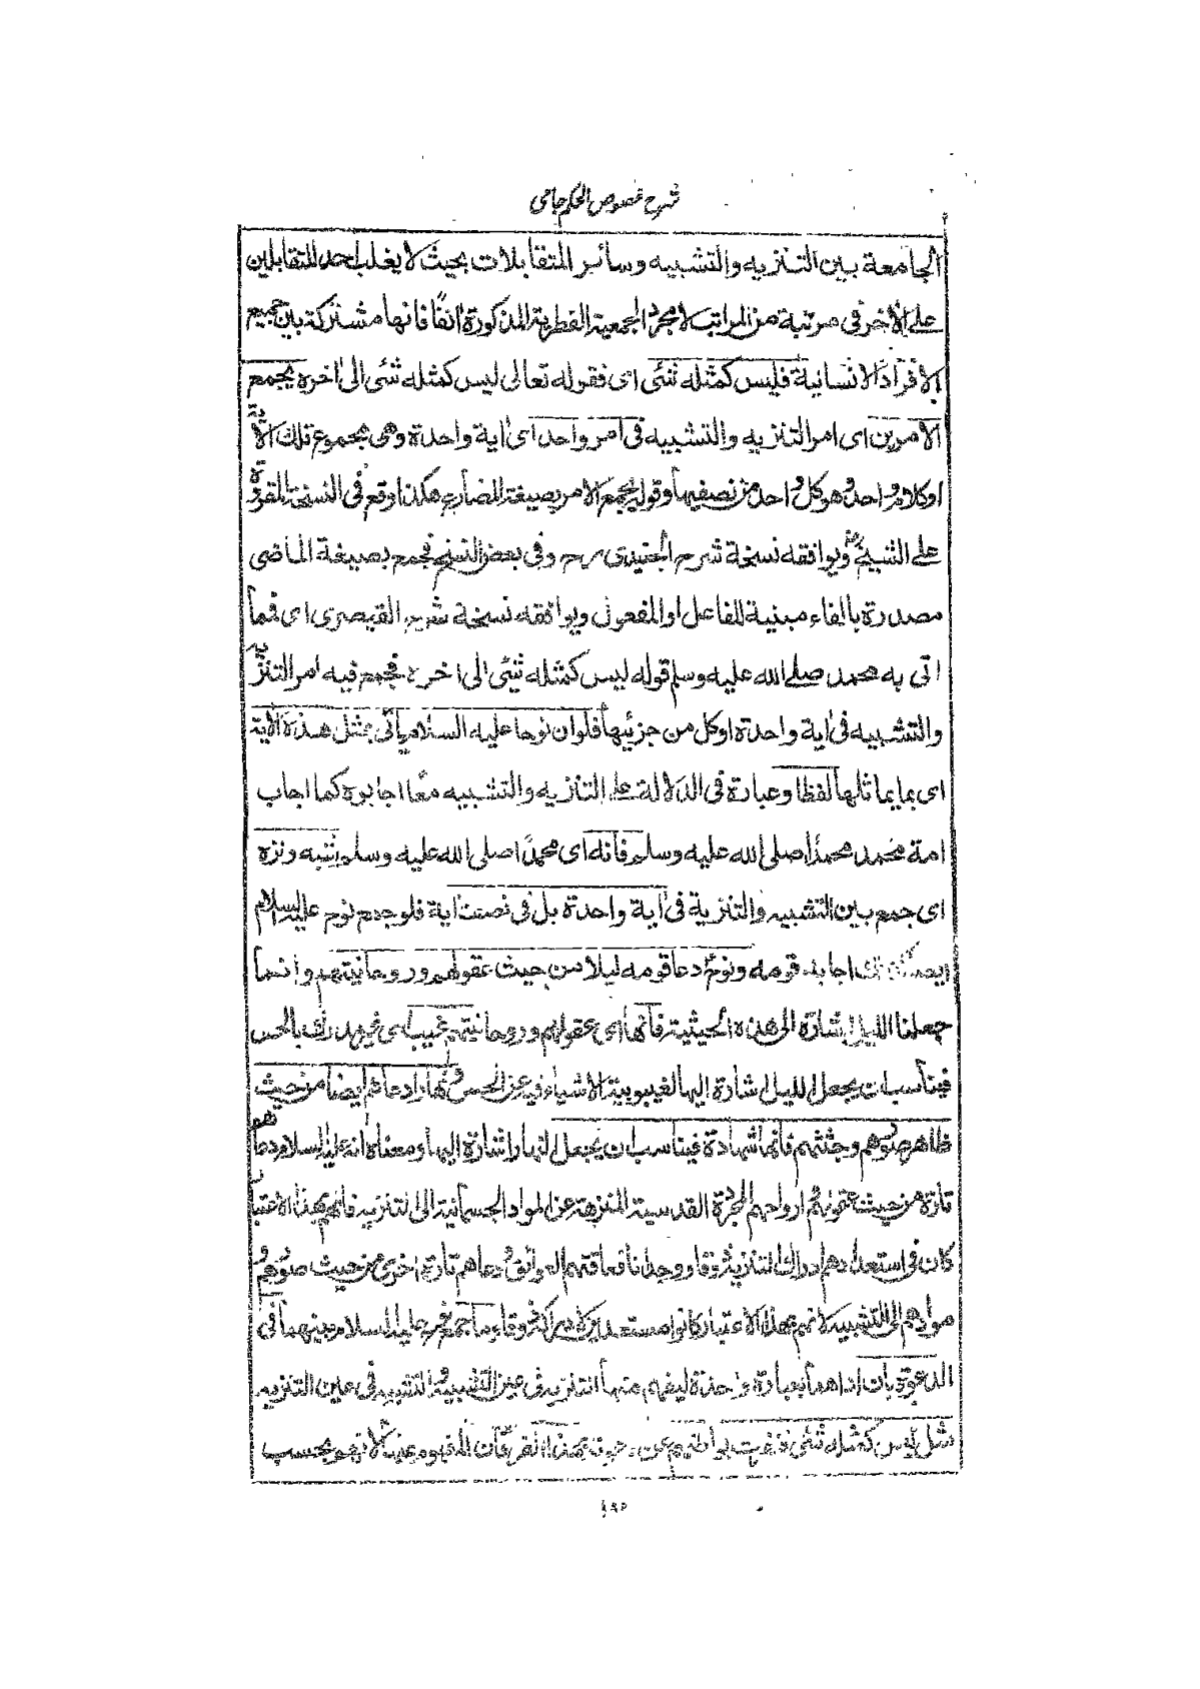 شرح فصوص الحكم جامى
الجامعة بين التنزيه والتشبيه وسائر المتقابلات بحيث لا يغلب احد المتقابلين
على الاخر فى مرتبة من المراتب لا مجرد الجمعية الفطرية المذكورة انفا فانها مشتركة بين جميع
الافراد الانسانية فليس كمثله شئ اى فقوله تعالى ليس كمثله شئ الى اخره يجمع
الامرين اى امر التنزيه والتشبيه فى امر واحد اى اية واحدة وهى مجموع تلك الاية
او كلام واحد وهو كل واحد من نصفيها وقوله يجمع الامر بصيغة المضارع هكذا وقع فى النسخة المقروة
على الشيخ ويوافقه نسخة شرح الجنيدى رح وفى بعض النسخ فجمع بصيغة الماضى
مصدرة بالفاء مبنية للفاعل او المفعول ويوافقه نسخة شرح القيصرى اى فما
اتى به محمد صلى الله عليه وسلم قوله ليس كمثله شئ الى اخره فجمع فيه امر التنزيه
والتشبيه فى اية واحدة او كل من جزئيها فلو ان نوحا عليه السلام ياتى بمثل هذه الاية
اى بما يماثلها لفظا وعبارة فى الدلالة على التنزيه والتشبيه معا اجابوه كما اجاب
امة محمد محمدا صلى الله عليه وسلم فانه اى محمدا صلى الله عليه وسلم شبه ونزه
اى جمع بين التشبيه والتنزيه فى اية واحدة بل فى نصف اية فلو جمع نوح عليه السلام
ايضا كذلك اجابه قومه ونوح دعا قومه ليلا من حيث عقولهم وروحانيتهم وانما
جعلنا الليل اشارة الى هذه الحيثية فانها اى عقولهم وروحانيتهم غيب اى غير مدرك بالحس
فيناسب ان يجعل الليل اشارة اليها لغيبوبية الاشياء فيه عن الحس ونهارا دعاهم ايضا من حيث
ظاهر صورهم وجثثهم فانها شهادة فيناسب ان يجعل النهار اشارة اليها ومعناه انه عليه السلام دعاهم
تارة من حيث عقولهم وارواحهم المجردة القدسية المنزهة عن المواد الجسمانية الى التنزيه فانهم بهذا الاعتبار
كان فى استعدادهم ادراك التنزيه ذوقا ووجدانا فعاقتهم العوائق ودعاهم تارة اخرى من حيث صورهم و
موادهم الى التشبيه لانهم بهذا الاعتبار كانوا مستعدين لادراكه ذوقا وما جمع نوح عليه السلام بينهما فى
الدعوة بان اداهما بعبارة واحدة ليفهم منها التنزيه فى عين التشبيه والتشبيه فى عين التنزيه
مثل ليس كمثله شئ فنفرت بواطنهم عن دعوته بهذا الفرقان المفهوم لانهم بحسب